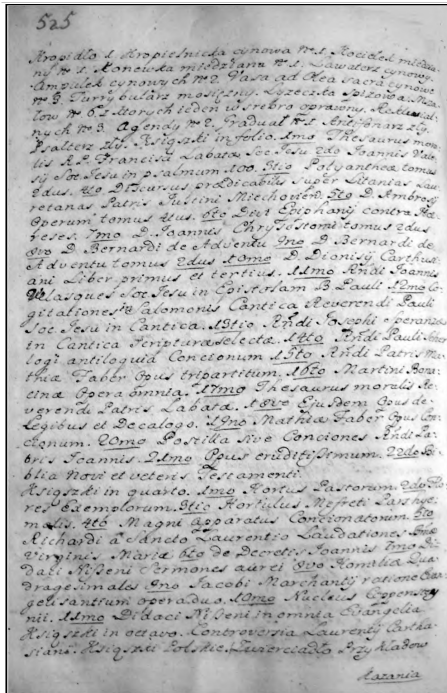 525
Kropidło 1. Kropielnicka cynowa Nr 1. Kociełek miedzia-
ny Nr 1. Konewska miedziana Nr 1. Lawaterz cynowy.
Ampułek cynowych Nr 2. Vasa ad Olea sacra cynowe
Nr 3. Turrybularz mosiężny. Łyżeczka spiżowa. Msza-
łow Nr 6. z ktorych ieden w srebro oprawny. Rytual-
nych Nr 3. Agendy Nr 2. Graduał Nr 1. Antyfonarz zły.
Psałterz zły. Książki in folio. 1mo Thesaurus mora-
lis R.P. Francisci Labata Soc. Jesu 2do Joannis Vale-
sij Soc Jesu in psalmum 100. 3tio Polyanthea tomus
2dus. 4to Discursus prædicabiles super Litanias Lau-
retanas Patris Justini Miechovien. 5to D. Ambrosij
Operum tomus 4tus. 6to Divi Epiphanij contra Hæ-
reses. 7mo D. Joannis Chrysostomi tomus 2dus
8vo D. Bernardi de Adventu 9no D. Bernardi de
Adventu tomus 2dus 10mo D. Dionisij Carthusi-
ani Liber primus et tertius. 11mo Rndi Joannis
Velasques Soc Jesu in Epistolam B. Pauli 12mo Co-
gitationes in Salomonis Cantica Reverendi Pauli
Soc. Jesu in Cantica. 13tio Rndi Josephi Speranza
in Cantica Scripturæ selectæ 14to Rndi Pauli
logi antiloquia Concionum 15to Rndi Patris Ma-
thiæ Faber Opus tripartitum. 16to Martini Bona-
cinæ Opera omnia. 17mo Thesaurus moralis Re-
verendi Patris Labatæ. 18vo Ejusdem Opus de
Legibus et Decalogo. 19no Mathiæ Faber Opus Con-
cionum. 20mo Postilla sive Conciones Rndi Pa-
tris Joannis. 21mo Opus eruditissimum. 22do Bi-
blia Novi et veteris Testamenti.
Książki in quarto. 1mo Hortus Pastorum 2do Flo-
res Exemplorum. 3tio Hortulus Mefreti Pars hye-
malis. 4to Magni Apparatus Concionatorum. 5to
Richardi à Sancto Laurentio Laudationes
Virginis Mariæ 6to de Decretis Joannis 7mo Di-
daci Niseni Sermones aurei 8vo Homilia Qua-
dragesimales 9no Jacobi Marchantij rationale Evan-
gelisantium opera duo. 10mo Nucleus Coppenstey-
nii. 11mo Didaci Niseni in omnia Evangelia
Książki in octavo. Controversia Laurentij Cartha-
siani. Książki Polskie. Zwierciadło Przykładow
Kazania